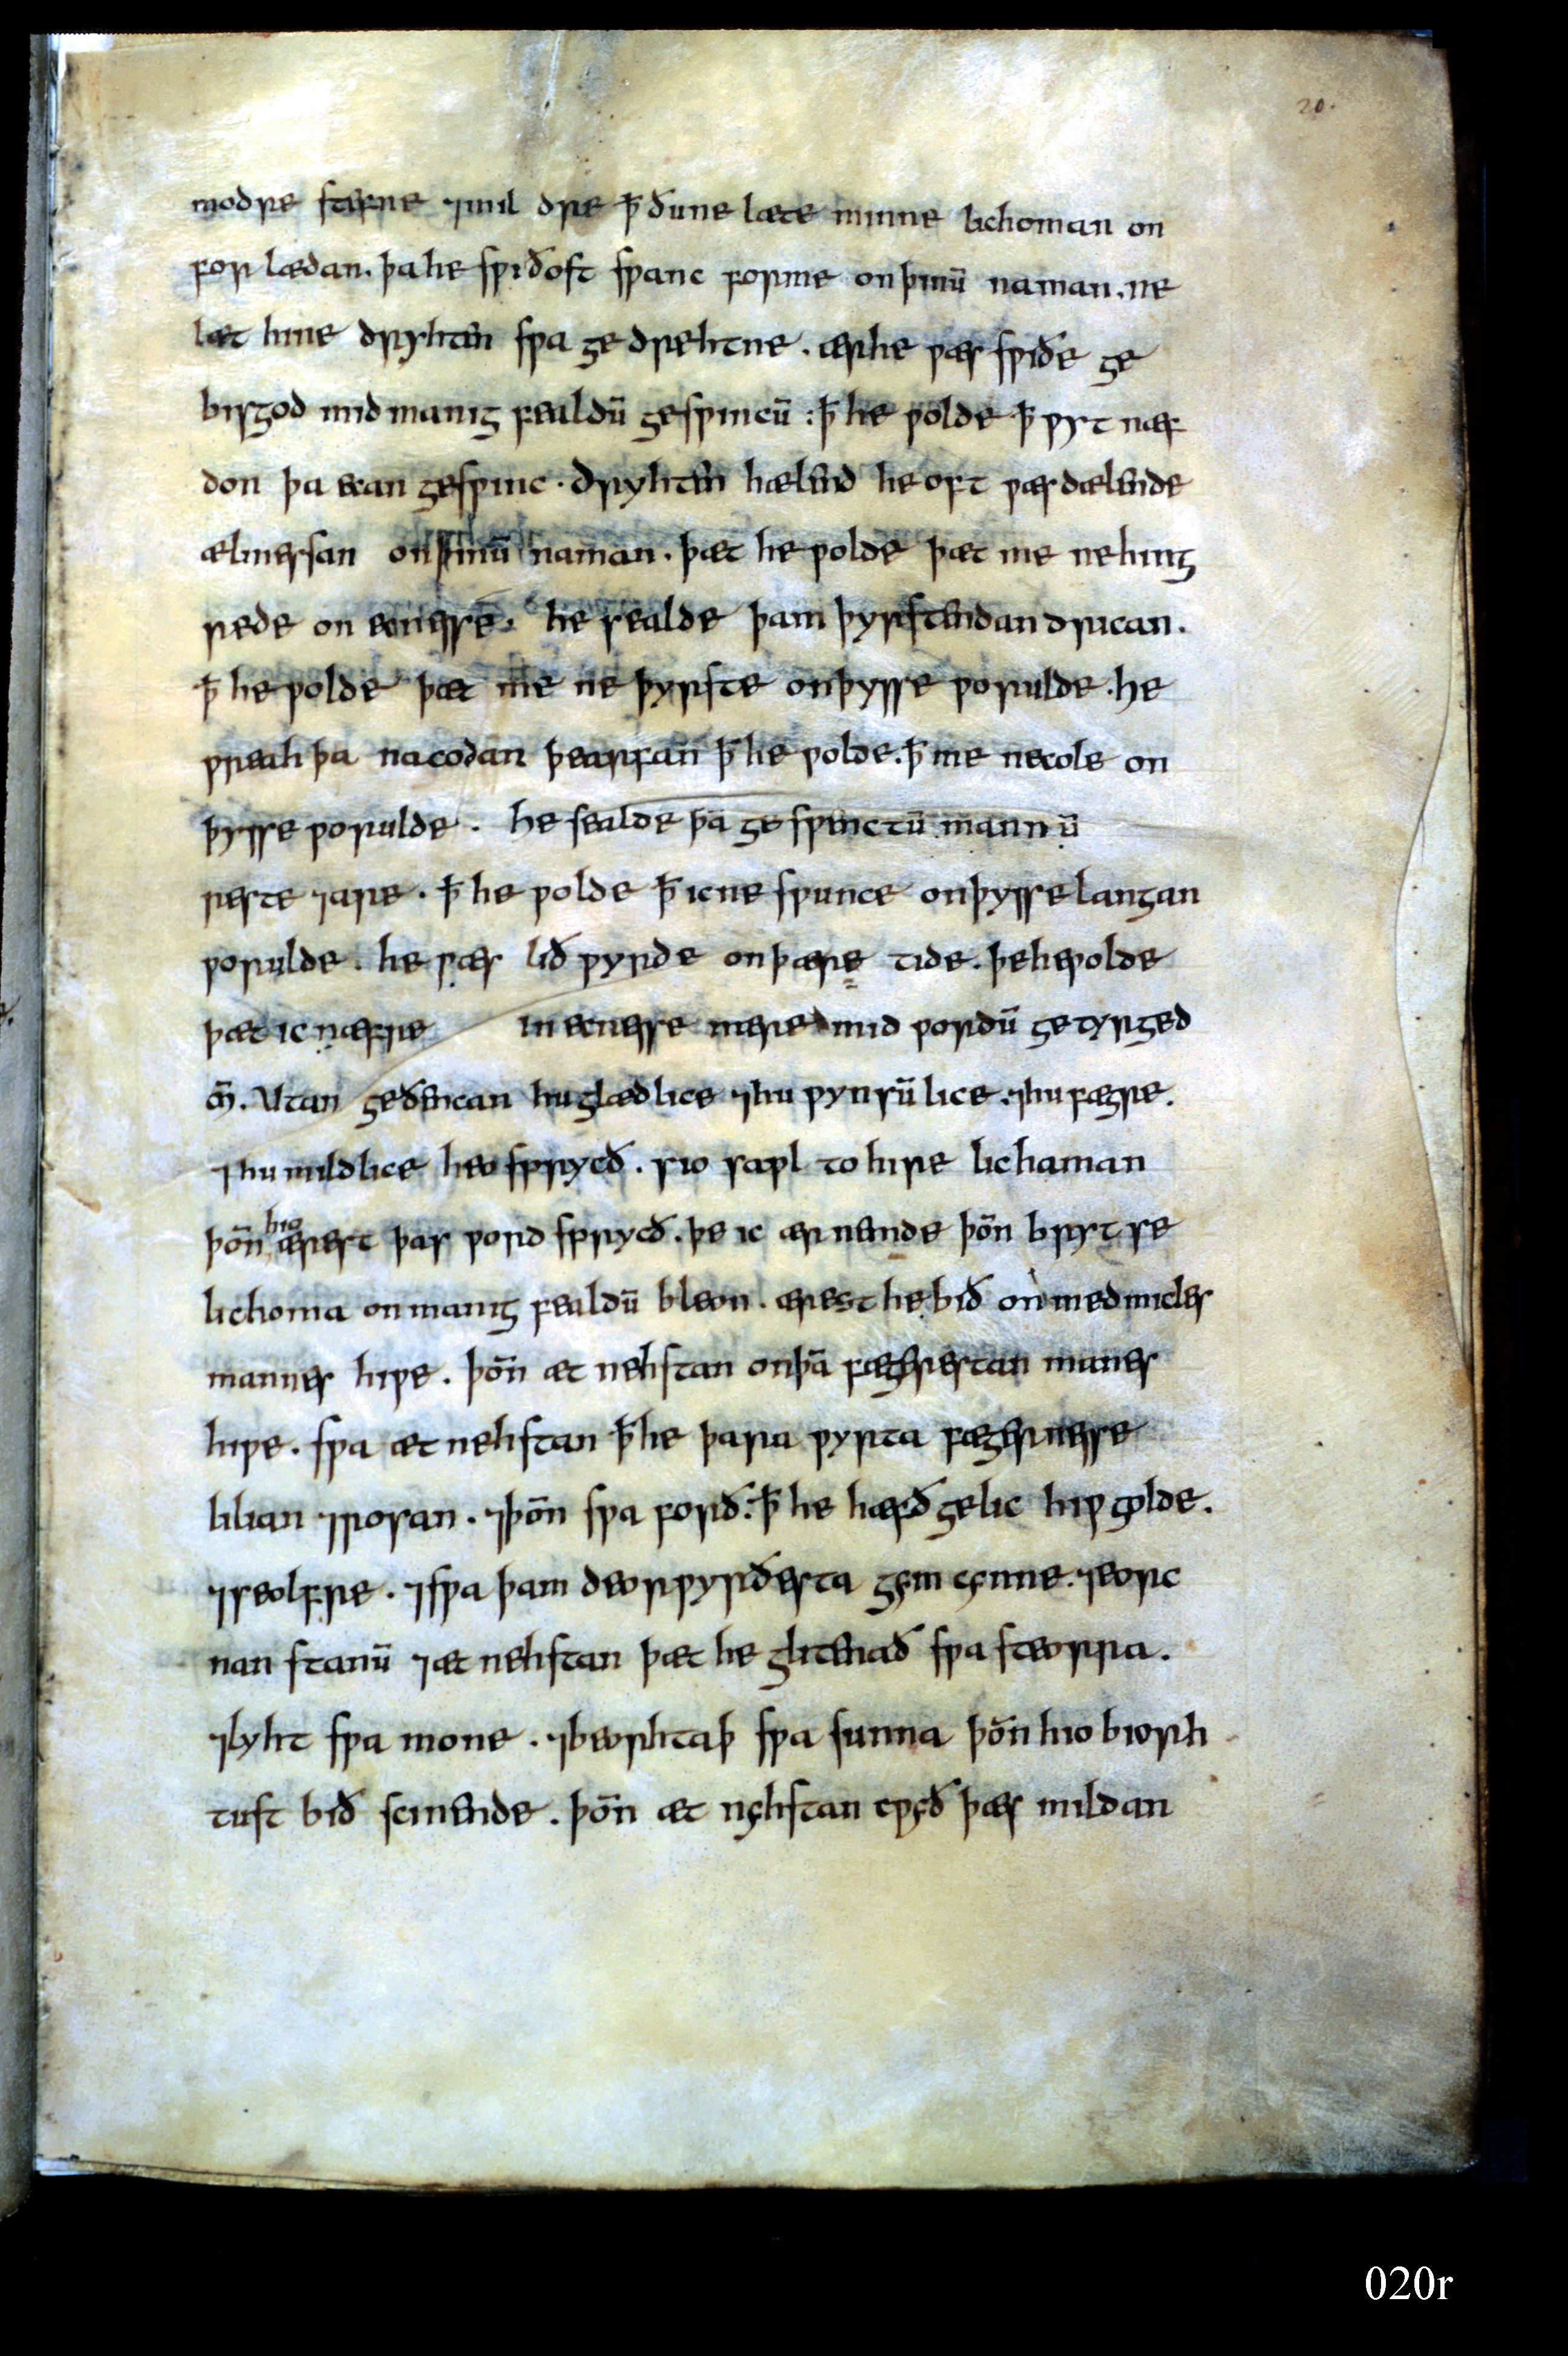 20.
modre stefne ⁊ mil dre ꝥ ðu ne læte minne lichoman on
for lædan. þa he swið oft swanc for me on þinū naman. ne
læt hine dryhten swa ge drehtne. ær he wæs swiðe ge
bisgod mid manig fealdū geswincū : ꝥ he wolde ꝥ wyt næf
don þa ecan geswinc. Dryhten hælend he oft wæs dælende
ælmessan on þinū naman. þæt he wolde þæt me ne hing
rede on ecnesse. he sealde þam þyrstendan drican.
ꝥ he wolde þæt me ne þyrste on þysse worulde. he
wreah þa nacodan þearfan ꝥ he wolde. ꝥ me ne cole on
þysse worulde. he sealde þā ge swinctū mannū
reste ⁊ are. ꝥ he wolde ꝥ ic ne swunce on þysse langan
worulde. he wæs lið wyrde on þære tide. þe he wolde
þæt ic næfre in ecnesse nære mid wordū getyrged
m̄. Utan geðencan hu glædlice ⁊ hu wynsūlice. ⁊ hu fægre.
⁊ hu mildlice heo sprycð. sio sawl to hire lichaman
þōn hio ærest þas word sprycð. þe ic ær nemde þōn bryst se
lichoma on manig fealdū bleon. ærest he bið on medmicles
mannes hiwe. þōn æt nehstan on þā fægerestan mannes
hiwe. swa æt nehstan ꝥ he þara wyrta fægernesse
lilian ⁊ rosan. ⁊ þōn swa forð. ꝥ he hæfð gelic hiw golde.
⁊ seolfre. ⁊ swa þam deorwyrðesta gȩm cȩnne. ⁊ eorc
nan stanū ⁊ æt nehstan þæt he glitenað swa steorra.
⁊ lyht swa mone. ⁊ beorhtaþ swa sunna þōn hio biorh
tust bið scinende. þōn æt nȩhstan cwȩð þæs mildan
020r